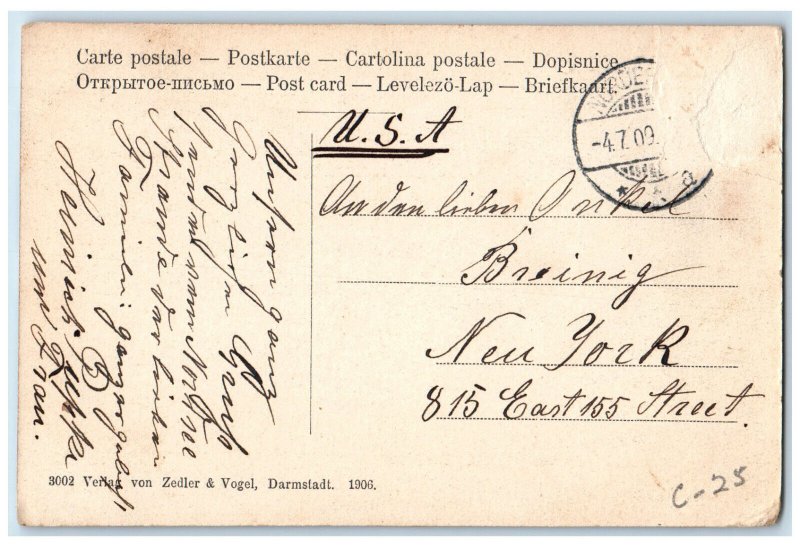 Carte postale — Postkarte — Cartolina postale — Dopisnice
Открытое-письмо — Post card — Levelezö-Lap — Briefkaart.
-4.7.09.
* * a
U. S. A
An den lieben Onkel
Breinig
New York
815 East 155 Street.
Unsern ganz
Gruß
vom Nordsee
Strande der lieben
Familie B
Heinrich
und Frau.
3002 Verlag von Zedler & Vogel, Darmstadt. 1906.
C-25